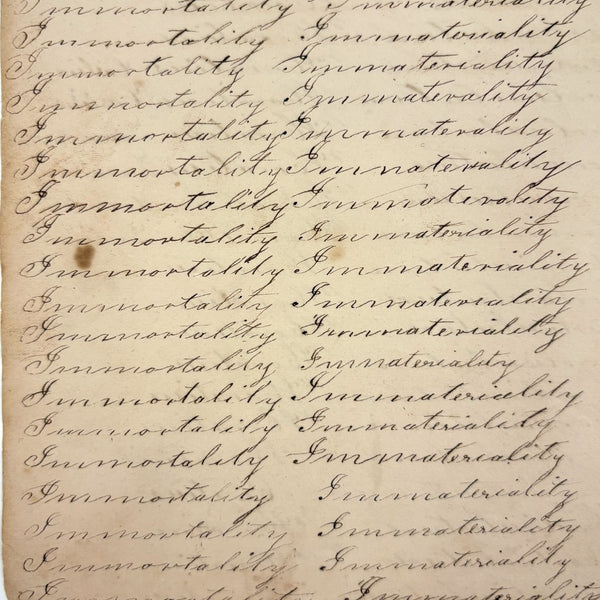 Immortality Immateriality
Immortality Immateriality
Immortality Immateriality
Immortality Immaterality
Immortality Immaterality
Immortality Immateriality
Immortality Immaterality
Immortality Immateriality
Immortality Immateriality
Immortality Immateriality
Immortality Immateriality
Immortality Immateriality
Immortality Immateriality
Immortality Immateriality
Immortality Immateriality
Immortality Immateriality
Immortality Immateriality
Immortality Immateriality
Immortality Immateriality